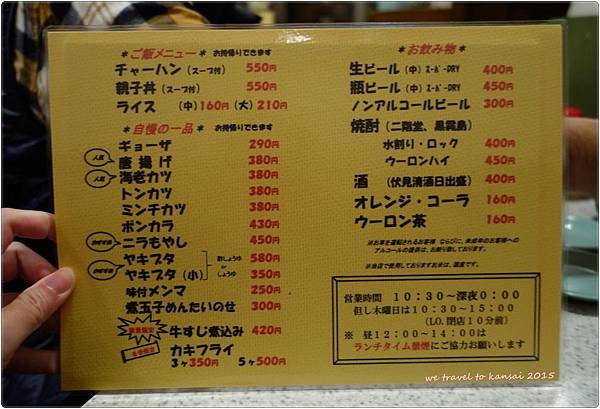 ＊ご飯メニュー＊ お持帰りできます
チャーハン（スープ付） 550円
親子丼（スープ付） 550円
ライス （中）160円（大）210円
＊自慢の一品＊ お持帰りできます
ギョーザ 290円
人気 唐揚げ 380円
人気 海老カツ 380円
トンカツ 380円
ミンチカツ 380円
ポンカラ 430円
おすすめ ニラもやし 450円
おすすめ ヤキブタ 580円
酢しょうゆ or しょうゆ
ヤキブタ（小） 350円
味付メンマ 250円
煮玉子めんたいのせ 300円
数量限定 牛すじ煮込み 420円
冬季限定 カキフライ
3ヶ350円 5ヶ500円
＊お飲み物＊
生ビール（中）ｽｰﾊﾟｰDRY 400円
瓶ビール（中）ｽｰﾊﾟｰDRY 450円
ノンアルコールビール 300円
焼酎（二階堂、黒霧島）
水割り・ロック 400円
ウーロンハイ 450円
酒 （伏見清酒日出盛） 400円
オレンジ・コーラ 160円
ウーロン茶 160円
※お車を運転されるお客様 ならびに、未成年のお客様への
アルコールの提供は、お断り致しております。
※当店で使用しておりますお米は、国産です。
営業時間 10:30～深夜0:00
但し木曜日は10:30～15:00
（LO.閉店10分前）
※ 昼12:00～14:00は
ランチタイム禁煙にご協力お願いします
we travel to kansai 2015